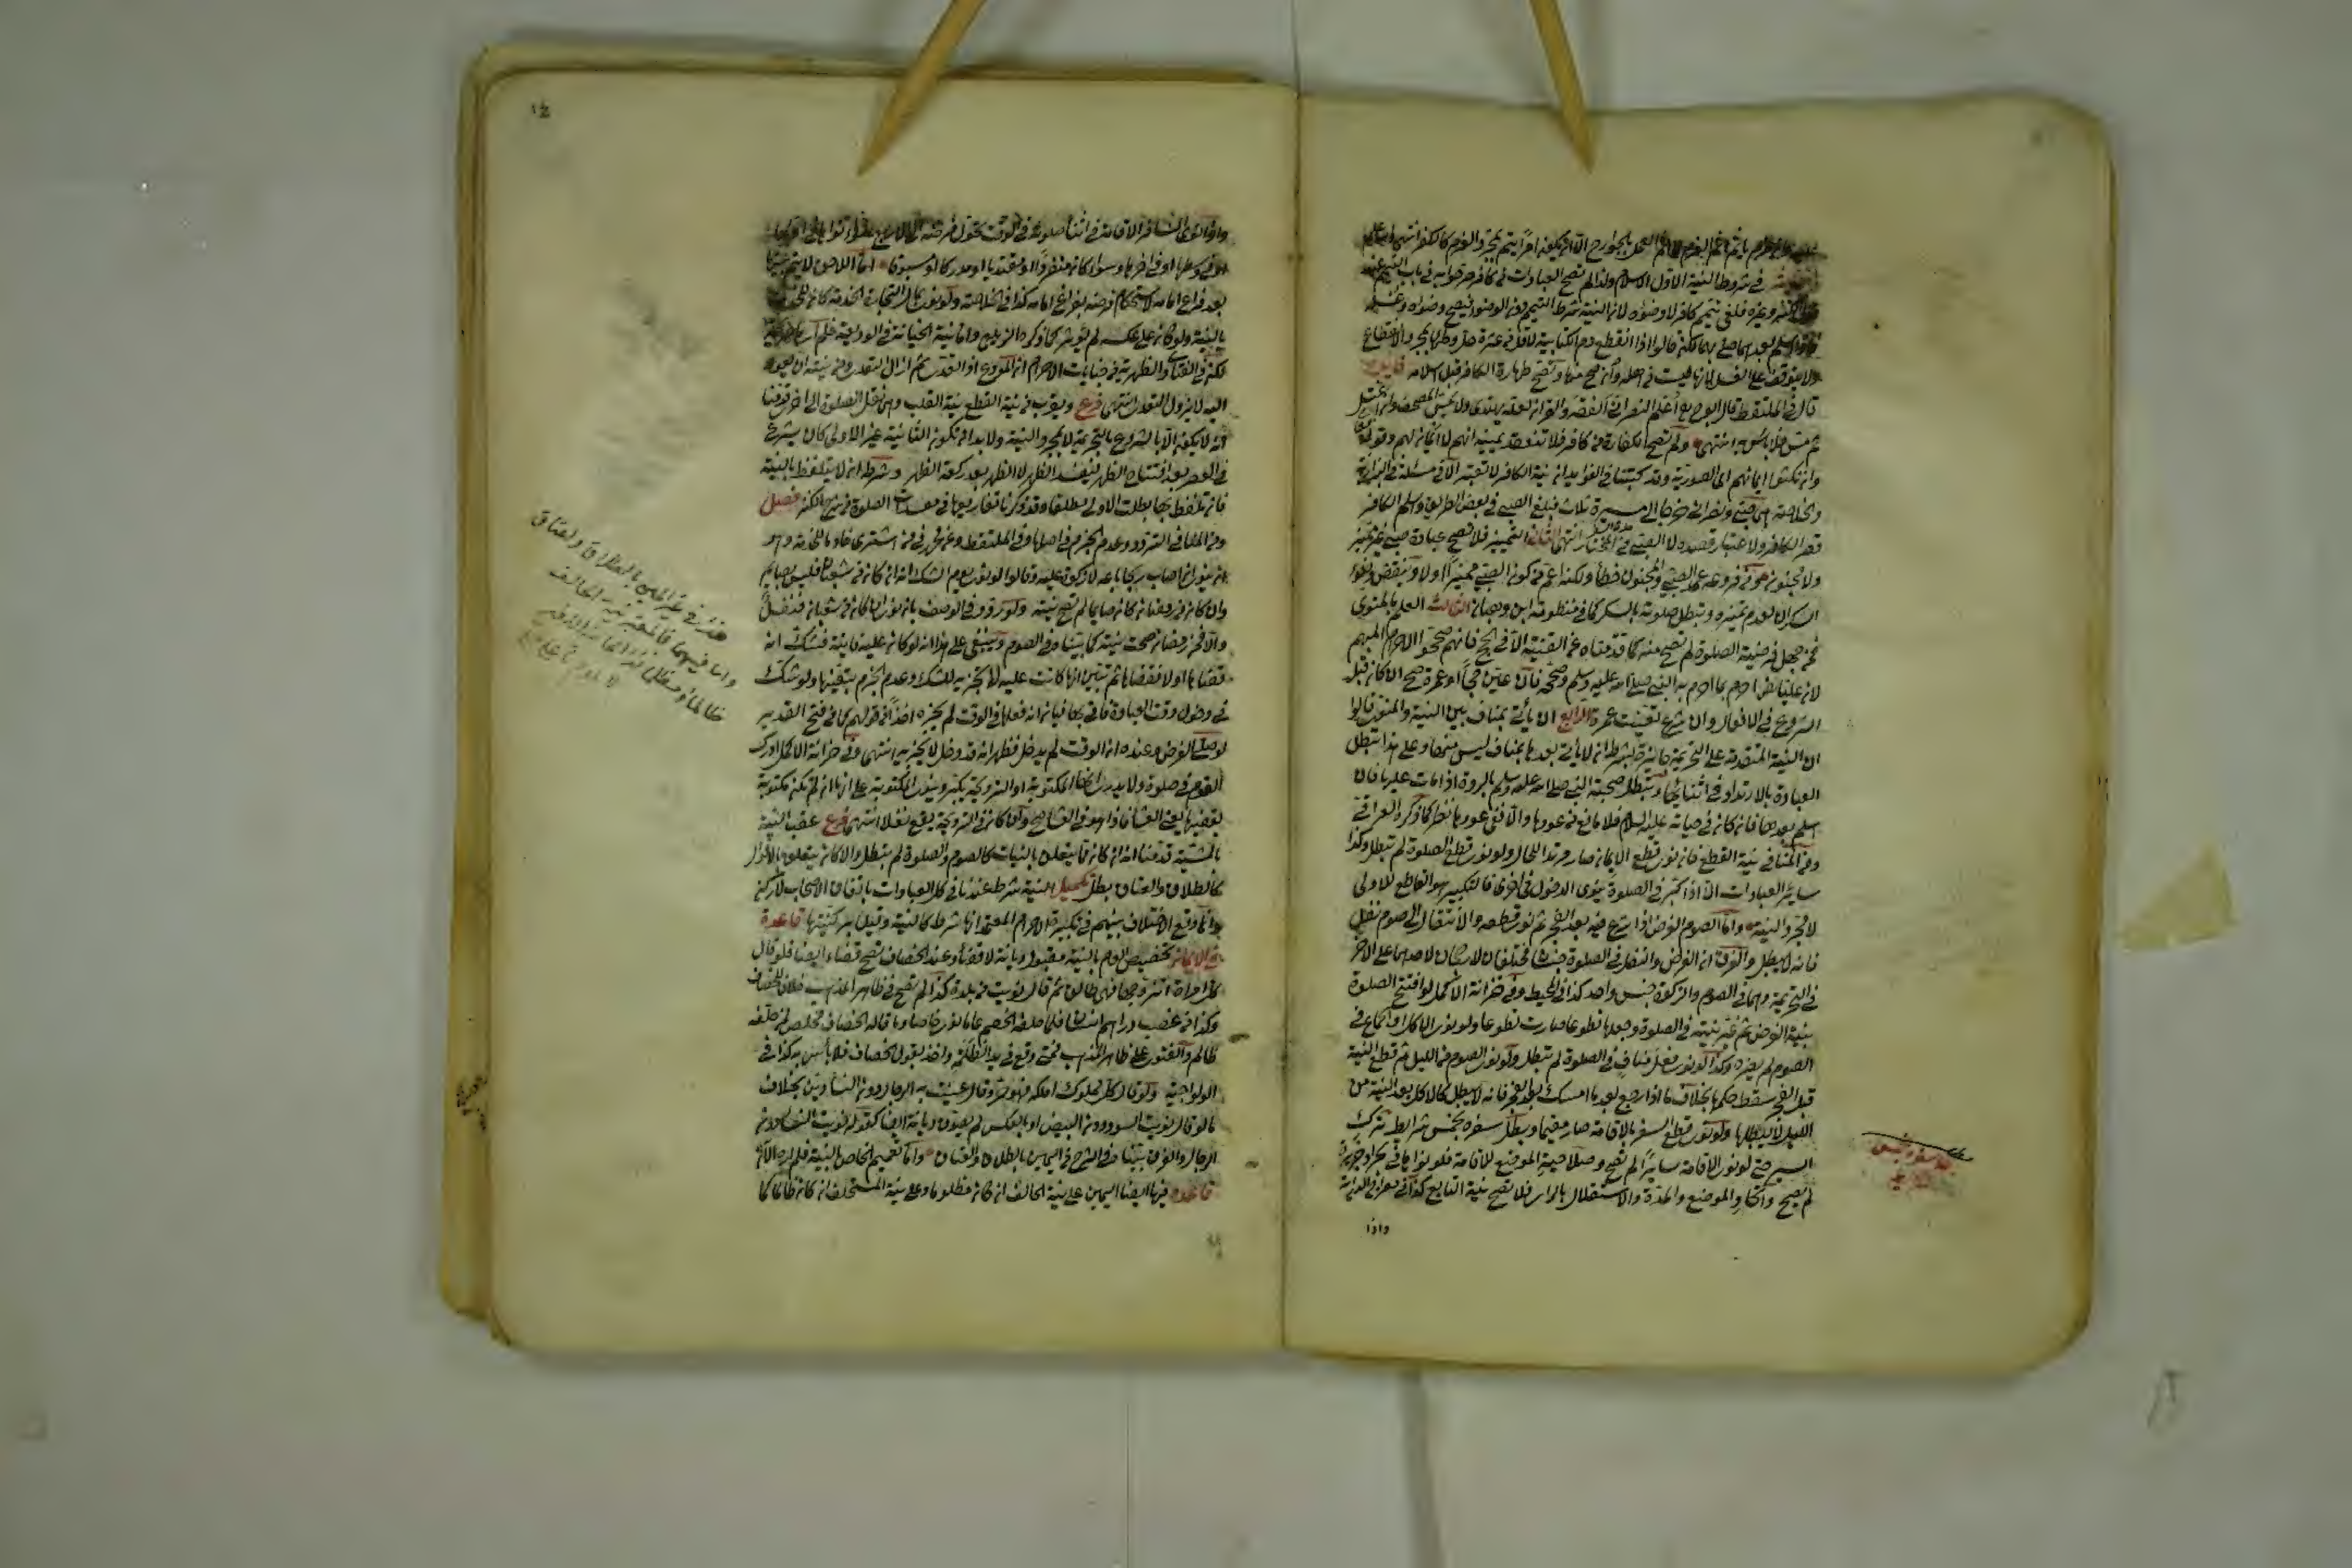 في شروط النية الأول الاسلام ولذا لم تصح العبادات من كافر صرحوا به في باب التيمم عند
وغيره فلغى تيمم كافر لا وضوءه لان النية شرط التيمم دون الوضوء فيصح وضوءه وغسله
فاذا اسلم بعدهما صلى بهما لكن قالوا اذا انقطع دم الكتابية لاقل من عشرة حل وطئها بمجرد الانقطاع
ولا يتوقف على الغسل لانها ليست من اهله وان صح منها وتصح طهارة الكافر قبل اسلامه
قال في الملتقط قال ابو ح اعلم النصراني الفقه والقرآن لعله يهتدى ولا يمس المصحف وان اغتسل
ثم مس فلا باس به انتهى ولم تصح الكفارة من كافر فلا تنعقد يمينه انهم لا ايمان لهم وقوله
وان نكثوا ايمانهم اي الصورية وقد كتبنا في الفوايد ان نية الكافر لا تعتبر الا في مسئلة في البزازية
والخلاصة هي صبي ونصراني خرجا الى مسيرة ثلاث فبلغ الصبي في بعض الطريق واسلم الكافر
قصر الكافر ولا اعتبار قصده لا الصبي في المختار انتهى الثاني التمييز فلا تصح عبادة صبي غير مميز
ولا مجنون ومن فروعه عمد الصبي والمجنون خطأ ولكنه اعم من كون الصبي مميزا اولا وينتقض وضوء
السكران لعدم تمييزه وتبطل صلوته بالسكر كما في منظومة ابن وهبان الثالث العلم بالمنوى
فمن جهل فرضية الصلوة لم تصح منه كما قدمناه عن القنية الا في الحج فانهم صححوا الاحرام المبهم
لان عليا رض احرم بما احرم به النبي صلى الله عليه وسلم وصححه فان عين حجا او عمرة صح ان كان قبل
الشروع في الافعال وان شرع تعينت عمرة الرابع ان لا يأتي بمناف بين النية والمنوى قالوا
ان النية المتقدمة على التحريمة جائزة بشرط ان لا يأتي بعدها بمناف ليس منها وعلى هذا تبطل
العبادة بالارتداد في اثنائها وتبطل صحبة النبي صلى الله عليه وسلم بالردة اذا مات عليها فان
اسلم بعدها فان كان في حياته عليه السلام فلا مانع من عودها والا ففي عودها نظر كما ذكره العراقي
ومن المنافي نية القطع فان نوى قطع الايمان صار مرتدا للحال ولو نوى قطع الصلوة لم تبطل وكذا
سائر العبادات الا اذا كبر في الصلوة ينوى الدخول في اخرى فالتكبير هو القاطع للاولى
لا مجرد النية واما الصوم الفرض اذا شرع فيه بعد الفجر ثم نوى قطعه والانتقال الى صوم نفل
فانه لا يبطل والفرق ان الفرض والنفل في الصلوة جنسان مختلفان لا رجحان لاحدهما على الآخر
في التحريمة وهما في الصوم والزكوة جنس واحد كذا في المحيط وفي خزانة الاكمل لو افتتح الصلوة
بنية الفرض ثم غير نيته في الصلوة وجعلها تطوعا صارت تطوعا ولو نوى الاكل او الجماع في
الصوم لم يضره وكذا لو نوى فعل مناف في الصلوة لم تبطل ولو نوى الصوم من الليل ثم قطع النية
قبل الفجر سقط حكمها بخلاف ما اذا رجع بعد ما امسك بعد الفجر فانه لا يبطل كالاكل بعد النية من
الليل لا يبطلها ولو نوى قطع السفر بالاقامة صار مقيما وبطل سفره بخمس شرايط ترك
السير حتى لو نوى الاقامة سائرا لم تصح وصلاحية الموضع للاقامة فلو نواها في بحر او جزيرة
لم تصح واتحاد الموضع والمدة والاستقلال بالراى فلا تصح نية التابع كذا في معراج الدراية
واذا
واذا نوى المسافر الاقامة في اثناء صلوته في الوقت تحول فرضه الى الاربع سواء نواها في اولها
او في وسطها او في آخرها وسواء كان منفردا او مقتديا او مدركا او مسبوقا اما اللاحق لا يتم
بعد فراغ امامه لاستحكام فرضه بفراغ امامه كذا في الخلاصة ولو نوى بمال التجارة الخدمة كان للخدمة
بالنية ولو كان على عكسه لم يؤثر كما ذكره الزيلعي واما نية الخيانة في الوديعة فلم ارها صريحة
لكن في الفتاوى الظهيرية في جنايات الاحرام ان المودع اذا تعدى ثم ازال التعدى ومن نيته ان يعود
اليه لا يزول التعدى انتهى فرع ويقرب من نية القطع نية القلب وهي نقل الصلوة الى اخرى قدمنا
انه لا يكون الا بالشروع بالتحريمة لا بمجرد النية ولا بد ان تكون الثانية غير الاولى كان يشرع
في العصر بعد افتتاح الظهر فيفسد الظهر لا الظهر بعد ركعة الظهر وشرطه ان لا يتلفظ بالنية
فان تلفظ بها بطلت الاولى مطلقا وقد ذكرنا تفاريعها في مفسدات الصلوة من شرح الكنز فصل
ومن المنافي التردد وعدم الجزم في اصلها وفي الملتقط وعن محمد في من اشترى خادما للخدمة وهو
انه ينوى ان اصاب ربحا باعه لا زكوة عليه وقالوا لو نوى يوم الشك انه ان كان من شعبان فليس بصايم
وان كان من رمضان كان صايما لم تصح نيته ولو ردد في الوصف بان نوى ان كان من شعبان فنفل
والا فمن رمضان صحت نيته كما بيناه في الصوم وينبغي على هذا انه لو كان عليه فايتة فشك انه
قضاها او لا فقضاها ثم تبين انها كانت عليه لا تجزيه للشك وعدم الجزم بتعيينها ولو شك
في دخول وقت العبادة فاتى بها فبان انه فعلها في الوقت لم يجزه اخذا من قولهم كما في فتح القدير
لو صلى الفرض وعنده ان الوقت لم يدخل فظهر انه قد دخل لا يجزيه انتهى وفي خزانة الاكمل ادرك
القوم في صلوة ولا يدرى انها المكتوبة او الترويحة يكبر وينوى المكتوبة على انها ان لم تكن مكتوبة
يقضيها يعني العشاء فاذا هو في العشاء صح وان كان في الترويحة يقع نفلا انتهى فرع عقب النية
بالمشيئة قدمنا انه ان كان مما يتعلق بالنيات كالصوم والصلوة لم تبطل وان كان يتعلق بالاقوال
كالطلاق والعتاق بطل تكميل النية شرط عندنا في كل العبادات باتفاق الاصحاب لا ركن
وانما وقع الاختلاف بينهم في تكبيرة الاحرام المعتمد انها شرط كالنية وقيل بركنيتها قاعدة
في الايمان تخصيص العام بالنية مقبول ديانة لا قضاء وعند الخصاف تصح قضاء ايضا فلو قال
كل امراة اتزوجها فهي طالق ثم قال نويت من بلدة كذا لم تصح في ظاهر المذهب خلافا للخصاف
وكذا من غصب دراهم انسان فلما حلفه الخصم عاما نوى خاصا وما قاله الخصاف مخلص لمن حلفه
ظالم والفتوى على ظاهر المذهب فمتى وقع في يد الظلمة واخذ بقول الخصاف فلا بأس به كذا في
الولوالجية ولو قال كل مملوك املكه فهو حر وقال عنيت به الرجال دون النساء دين بخلاف
ما لو قال نويت السود دون البيض او بالعكس لم يصدق ديانة ايضا كقوله نويت النساء دون
الرجال والفرق بيناه في الشرح في اليمين بالطلاق والعتاق واما تعميم الخاص بالنية فلم اره الآن
قاعدة فيها ايضا اليمين على نية الحالف ان كان مظلوما وعلى نية المستحلف ان كان ظالما كما
هذا في غير اليمين بالطلاق والعتاق
واما فيهما فالمعتبر نية الحالف
ظالما او مظلوما